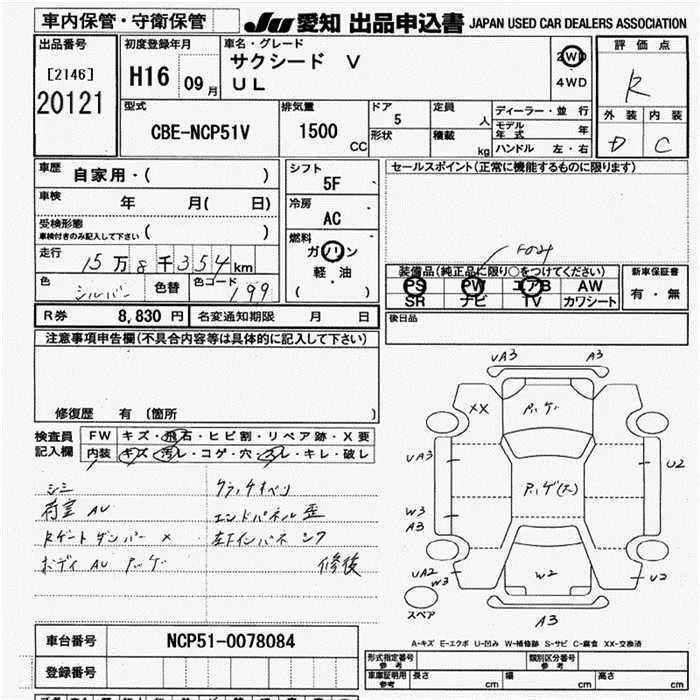 車内保管・守衛保管
JU 愛知 出品申込書 JAPAN USED CAR DEALERS ASSOCIATION
出品番号
[2146]
20121
初度登録年月
H16 09月
車名・グレード
サクシード V
UL
2WD
4WD
評価点
R
外装 内装
D C
型式
CBE-NCP51V
排気量
1500 CC
ドア
5
形状
定員
人
積載
kg
ディーラー・並行
モデル年式 年
ハンドル 左・右
車歴
自家用・( )
車検
年 月( 日)
受検形態
車検付きのみ記入して下さい ( )
走行
15万8千354km
色
シルバー
色替
色コード
199
シフト
5F
冷房
AC
燃料
ガソリン
軽・油
( )
セールスポイント(正常に機能するものに限ります)
装備品(純正品に限り○をつけてください)
PS PW エアB AW
SR ナビ TV カワシート
新車保証書
有・無
後日品
R券 8,830 円 名変通知期限 月 日
注意事項申告欄(不具合内容等は具体的に記入して下さい)
修復歴 有 (箇所 )
検査員
記入欄
FW キズ・飛石・ヒビ割・リペア跡・X要
内装 キズ・汚レ・コゲ・穴・スレ・キレ・破レ
シミ
荷室 AU
Rゲートダンパー ×
エンドパネル 歪
修後
VA3 A3
XX
VA3
U2
W3
A3
VA2
W3
W2
U2
A3
スペア
A-キズ E-エクボ U-凹み W-補修跡 S-サビ C-腐食 XX-交換済
車台番号
NCP51-0078084
登録番号
形式指定番号
参考
類別区分番号
参考
車庫証明用
参考
長さ cm 幅 cm 高さ cm